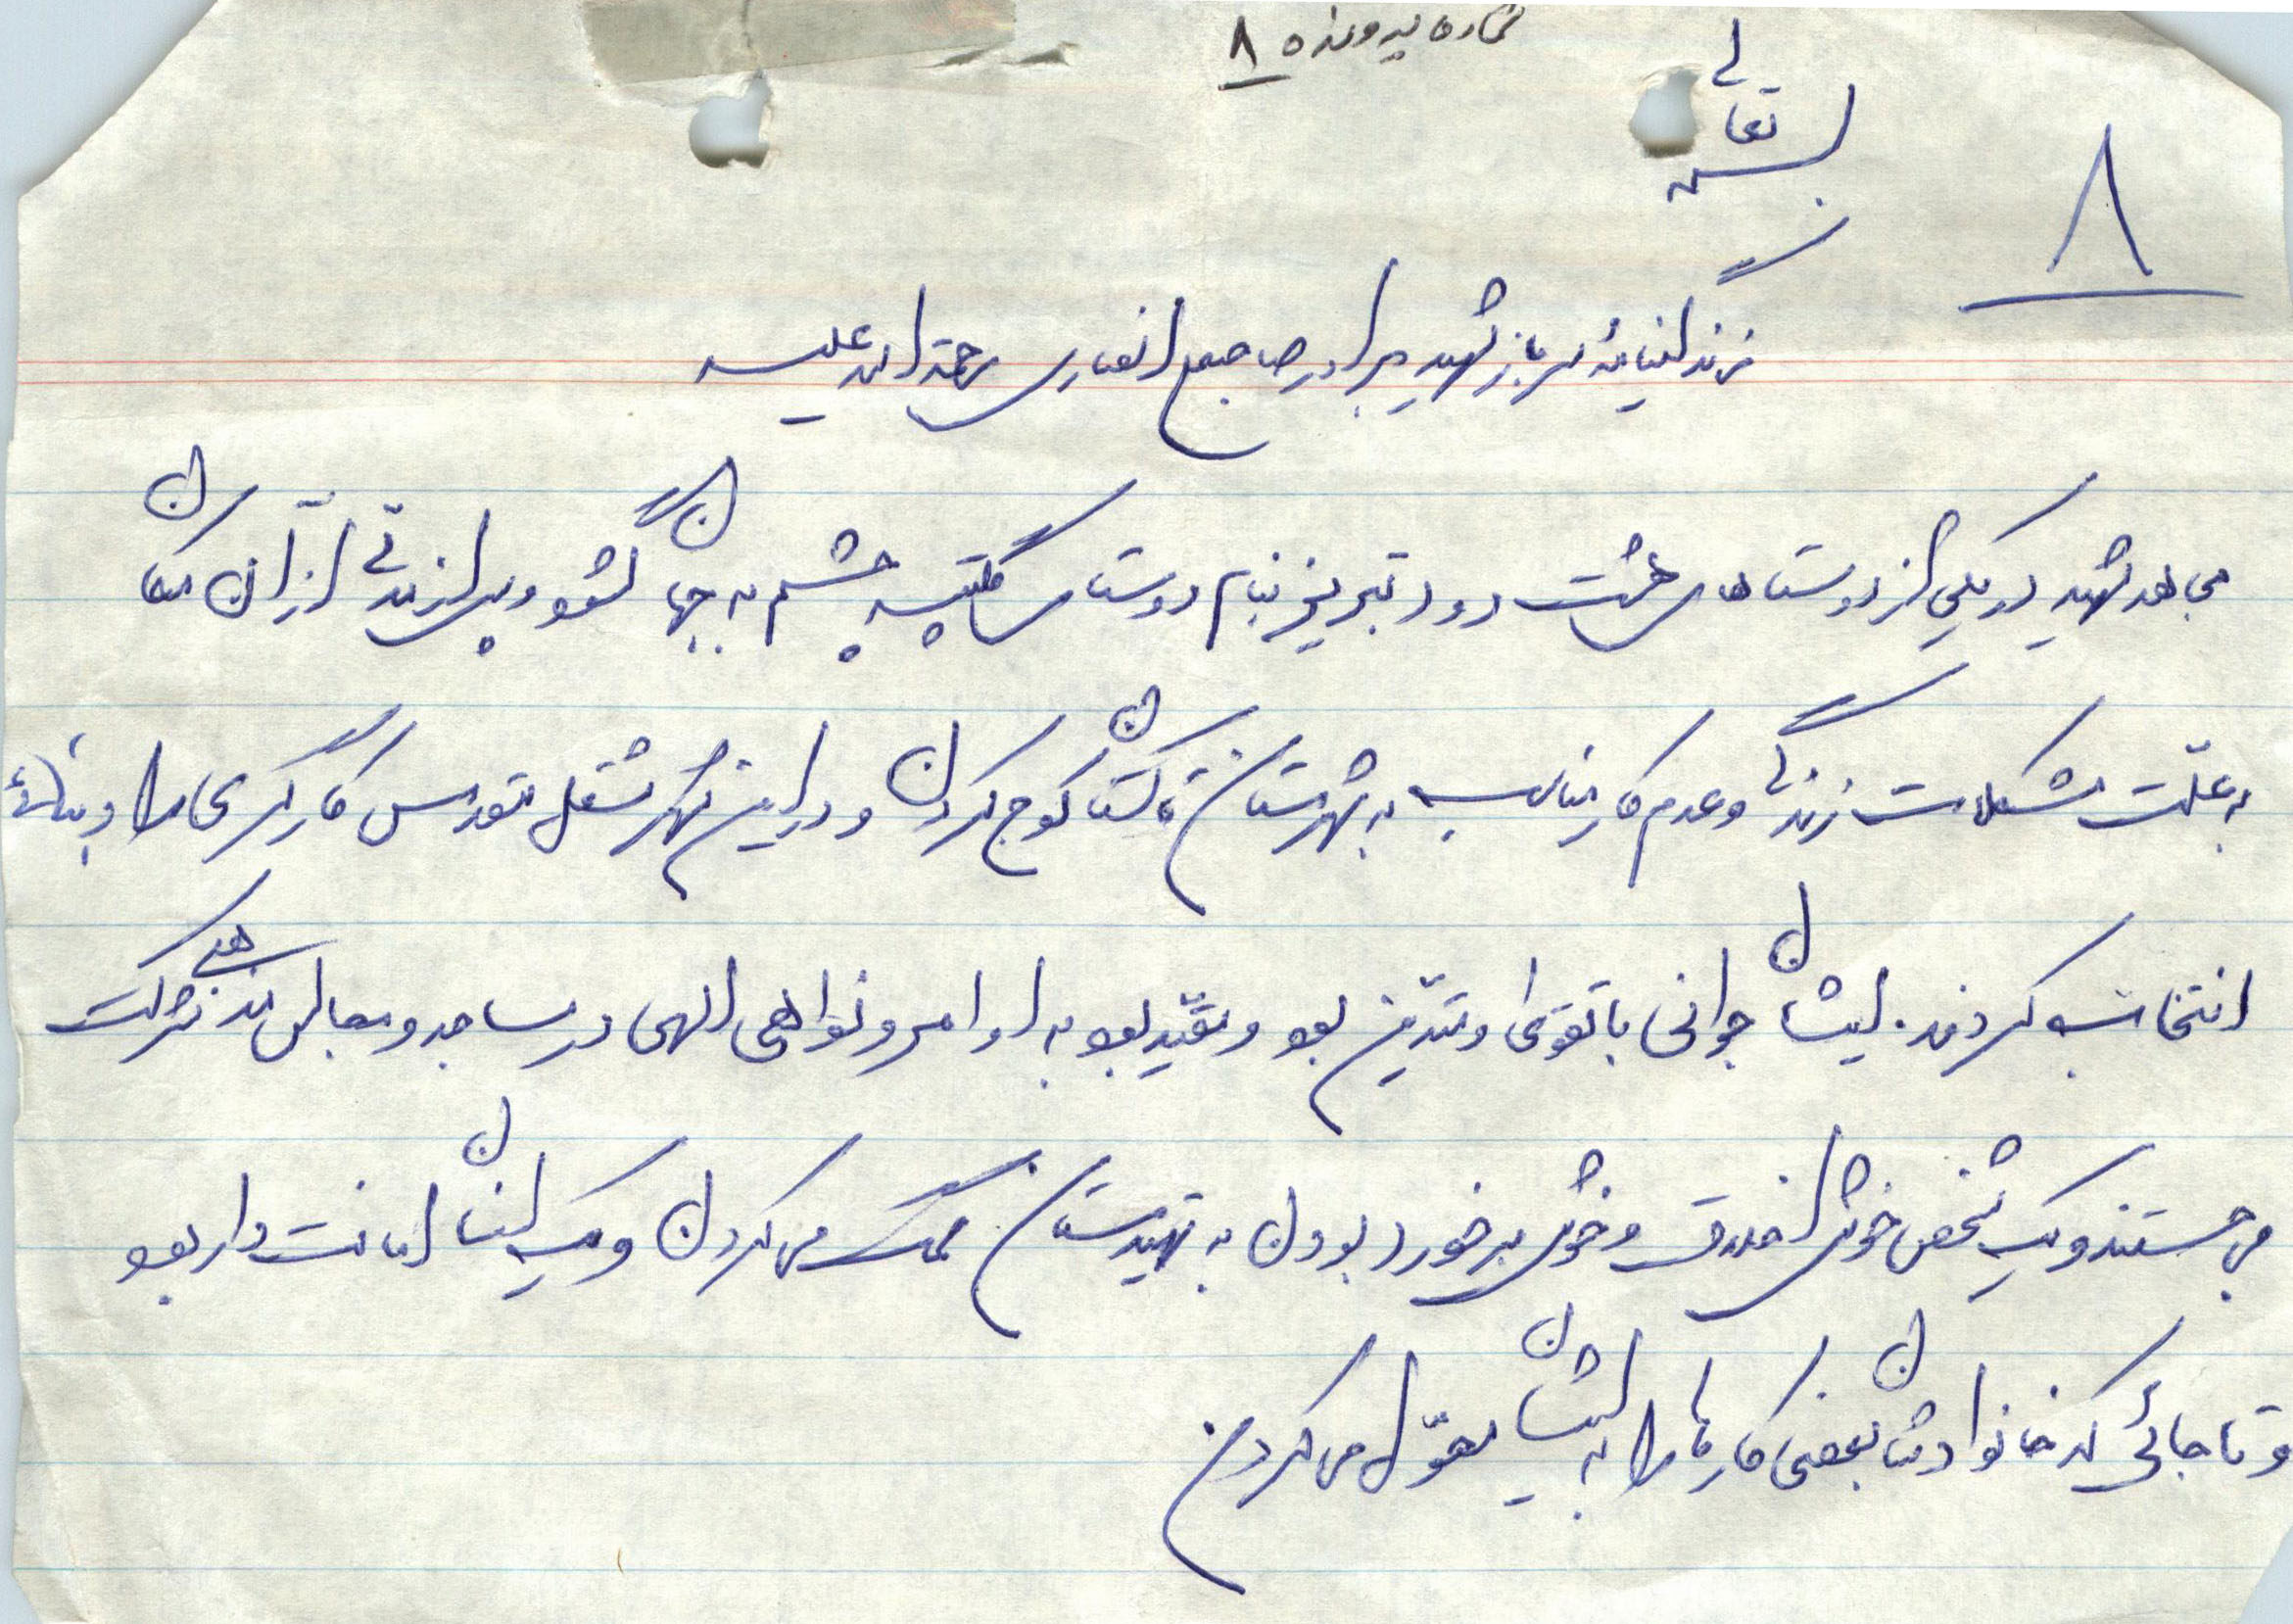 شماره پرونده ۸
بسمه تعالی
۸
زندگینامه سرباز شهید برادر صاحبعلی انصاری رحمة الله علیه
مجاهد شهید در یکی از روستاهای هشترود تبریز بنام روستای چشم به جهان گشود و پس از مدتی از آن مکان
به علّت مشکلات زندگی و عدم کار مناسب به شهرستان کوچ کردن و در این شهر شغل مقدس کارگری را و بنائی
انتخاب کردند. ایشان جوانی با تقوی و متدّین بود و مقیّد بود به اوامر و نواهی الهی در مساجد و مجالس مذهبی شرکت
می جستند و یک شخص خوش اخلاق و خوش برخورد بودن به تهیدستان کمک می کردن و یک انسان امانت دار بود
و تا جائی که خانوادشان بعضی کارها را به ایشان محوّل می کردن